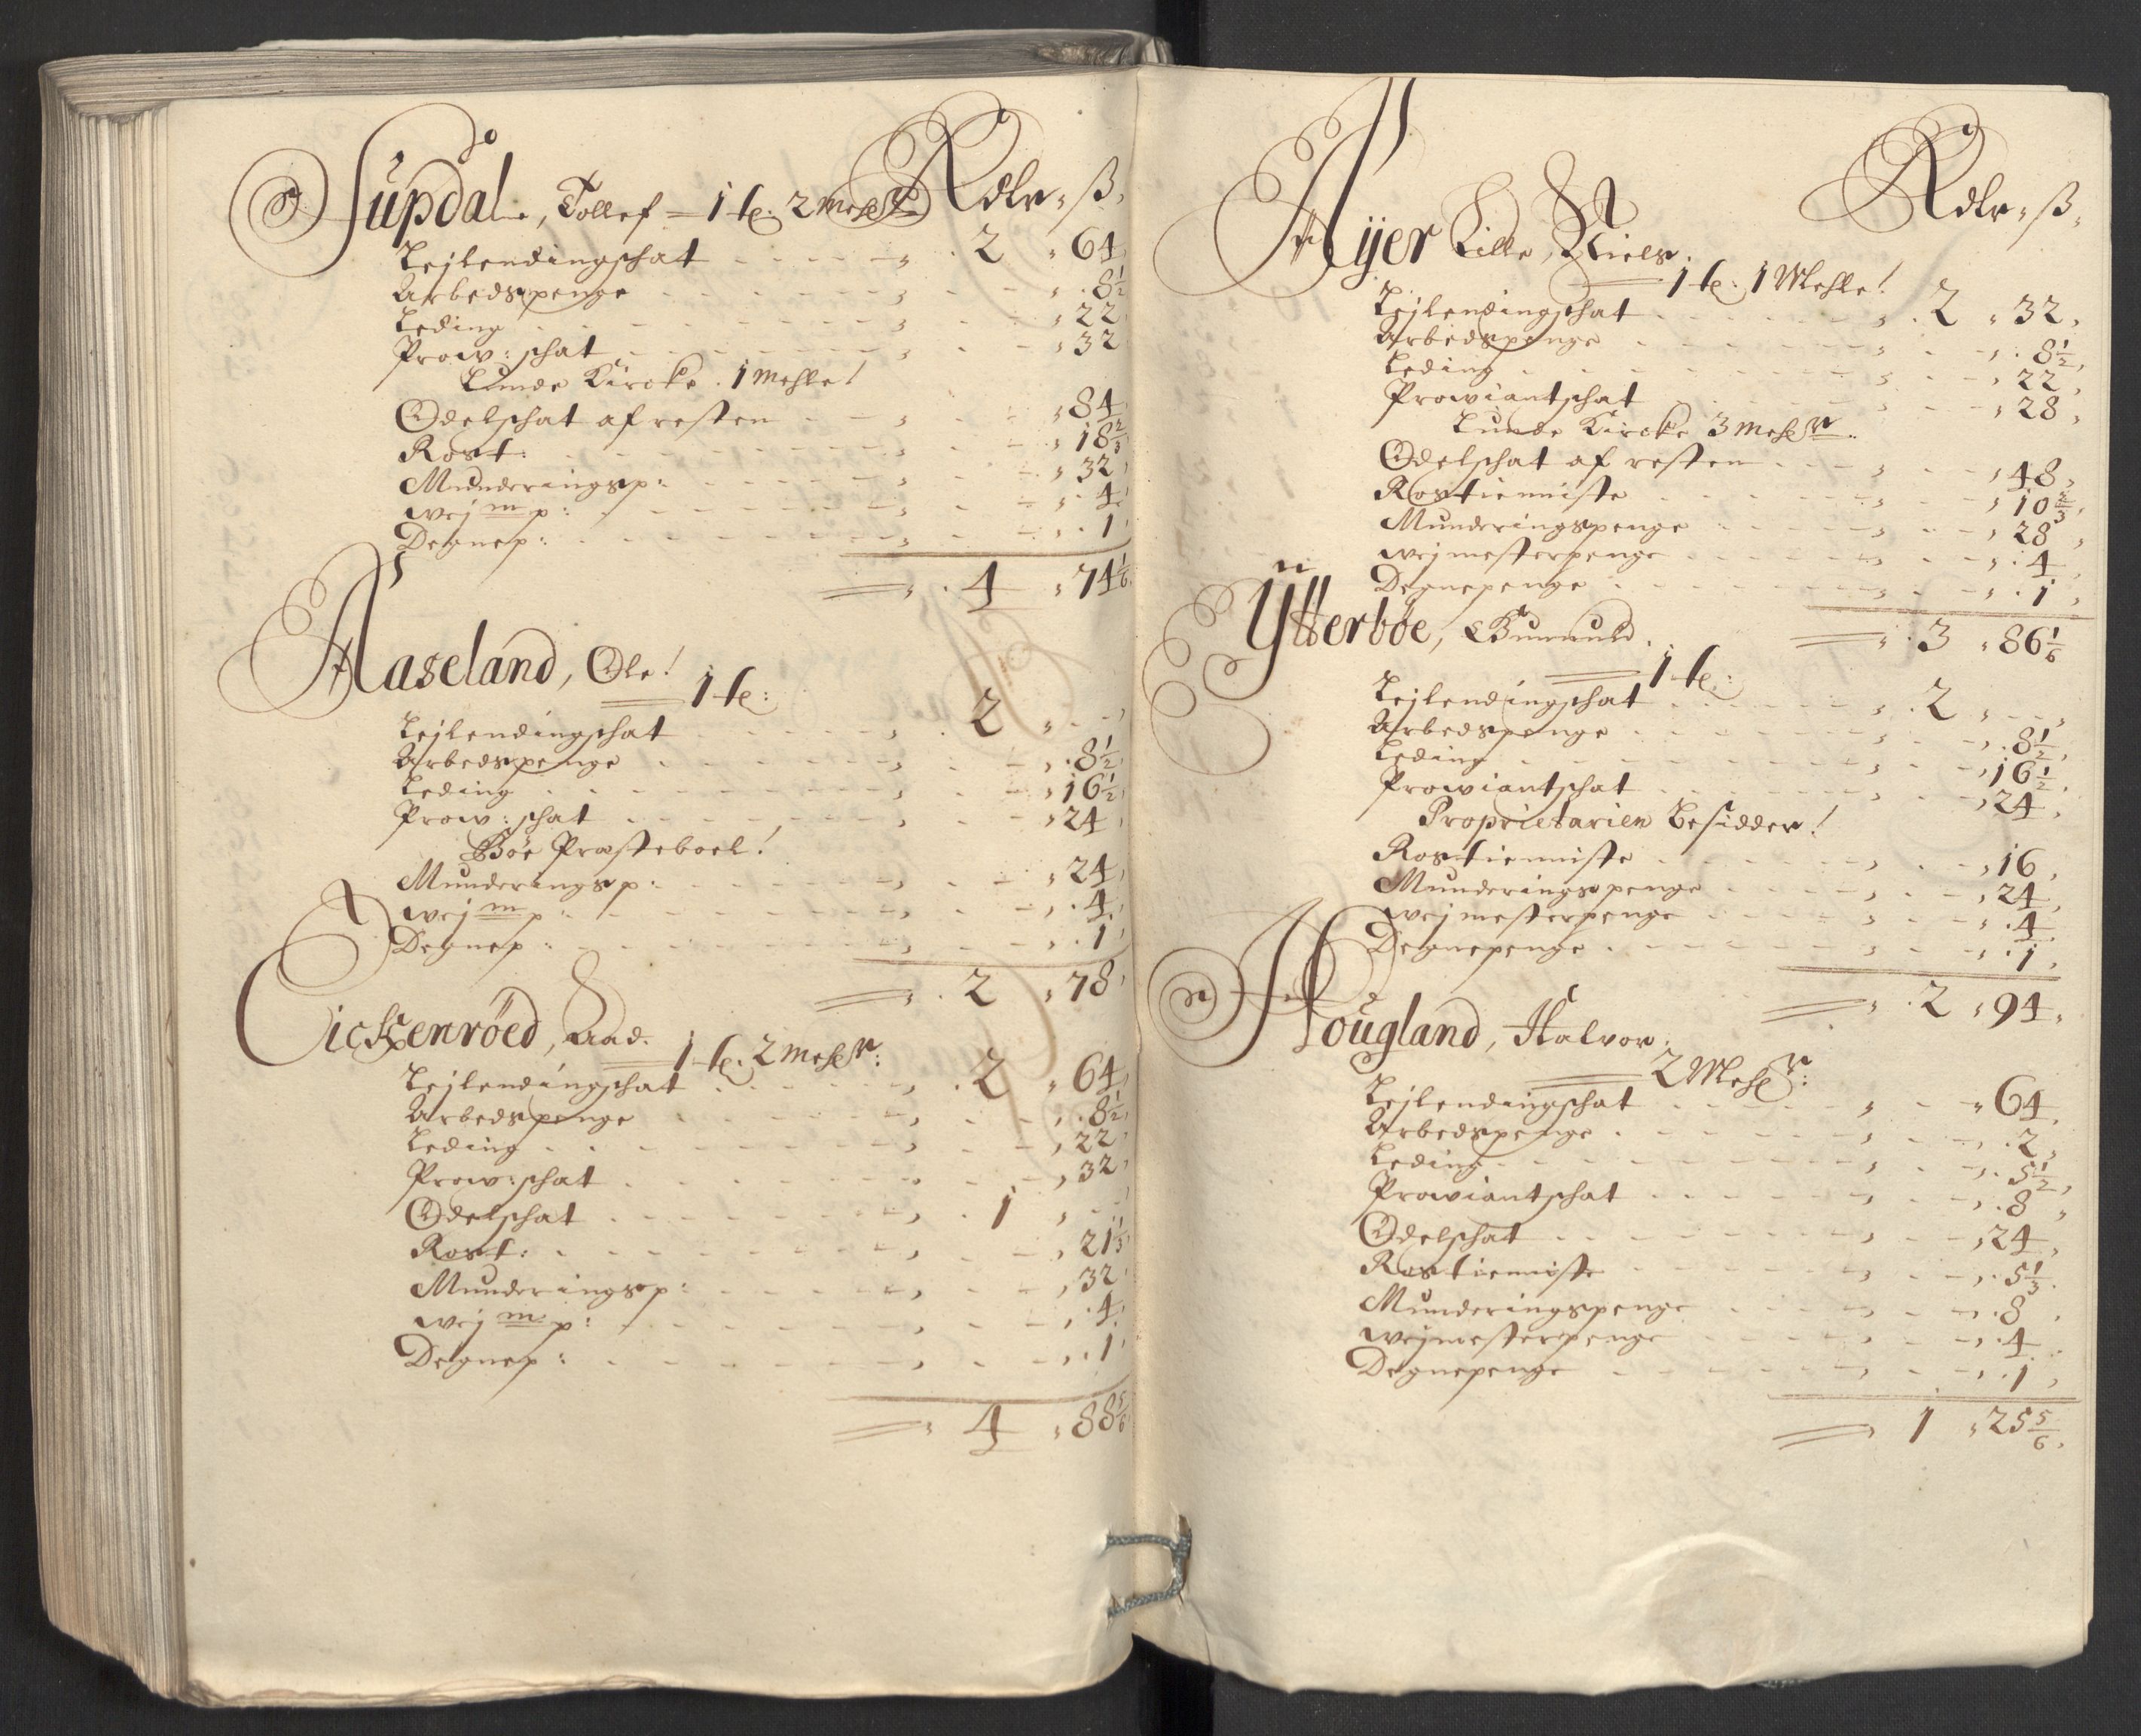 Rdlr ß
Supdal, Tollef 1 t: 2 Mehlr
Lejlendingschat 2 64
Arbedspenge 8 1/2
Leding 22
Prov: schat 32
Lunde Kircke 1 Mehle
Odelschat af resten 84
Rost: 18 2/3
Munderingsp: 32
wej m p: 4
Degnep: 1
4 74 1/6
Aaseland, Ole
1 t:
Lejlendingschat 2
Arbedspenge 8 1/2
Leding 16 1/2
Prov: schat 24
Bøe Præsteboel
Munderingsp: 24
wej m p: 4
Degnep: 1
2 78
Eickenröed, Aad.
1 t: 2 Mehlr:
Lejlendingschat 2 64
Arbedspenge 8 1/2
Leding 22
Prov: schat 32
Odelschat 1
Rost: 21 1/3
Munderingsp: 32
wej m p: 4
Degnep: 1
4 88 5/6
Rdlr ß
Äyer Lille, Niels.
1 t: 1 Mehle
Lejlendingschat 2 32
Arbedspenge 8 1/2
Leding 22
Proviantschat 28
Lunde Kircke 3 Mehlr
Odelschat af resten 48
Rostienniste 10 2/3
Munderingspenge 28
wejmesterpenge 4
Degnepenge 1
3 86 1/6
Ytterböe, Gunnuld.
1 t:
Lejlendingschat 2
Arbedspenge 8 1/2
Leding 16 1/2
Proviantschat 24
Proprietarien Besidder
Rostienniste 16
Munderingspenge 24
wejmesterpenge 4
Degnepenge 1
2 94
Hougland, Halvor.
2 Mehlr:
Lejlendingschat 64
Arbedspenge 2
Leding 5 1/2
Proviantschat 8
Odelschat 24
Rostienniste 5 1/3
Munderingspenge 8
wejmesterpenge 4
Degnepenge 1
1 25 5/6